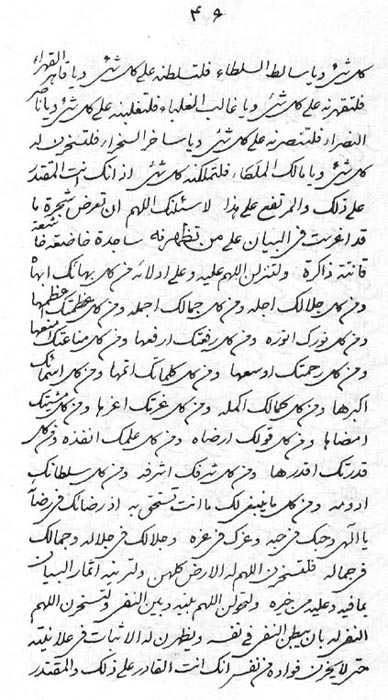 ٤٩
كل شئ و يا سالط السلطاء فلتسلطنه على كل شئ و يا قاهر القهراء
فلتقهرنه على كل شئ و يا غالب الغلباء فلتغلبنه على كل شئ و يا ناصر
النصراء فلتنصرنه على كل شئ و يا ساخر السخراء فلتسخرن له
كل شئ و يا مالك الملكاء فلتملكنه كل شئ اذ انك انت المقتدر
على ذلك والمرتفع على هذا لاسئلنك اللهم ان تعرض شجرة ما
قد اغرست فى البيان على من تظهرنه ساجدة خاضعة خاشعة
قانتة ذاكرة ولتنزلن اللهم عليه وعلى ادلائه من كل بهائك ابهاه
ومن كل جلالك اجله ومن كل جمالك اجمله ومن كل عظمتك اعظمها
ومن كل نورك انوره ومن كل رفعتك ارفعها ومن كل مناعتك امنعها
ومن كل رحمتك اوسعها ومن كل كلماتك اتمها ومن كل اسمائك
اكبرها ومن كل كمالك اكمله ومن كل عزتك اعزها ومن كل مشيتك
امضاها ومن كل قولك ارضاه ومن كل علمك انفذه ومن كل
قدرتك اقدرها ومن كل شرفك اشرفه ومن كل سلطانك
ادومه ومن كل ما ينبغى لك ما انت تستحق به اذ رضائك فى رضاه
يا الهى وحبك فى حبه وعزك فى عزه وجلالك فى جلاله وجمالك
فى جماله فلتسخرن اللهم له الارض كلهن ولتربينه اثمار البيان
بما فيه وعليه من خيره ولتحولن اللهم بينه وبين النفى ولتسخرن اللهم
النفى له بان يبطن النفى فى نفسه ويظهرن له الاثبات فى علانيته
حتى لا يحزن فواده من نفس انك انت القادر على ذلك والمقتدر